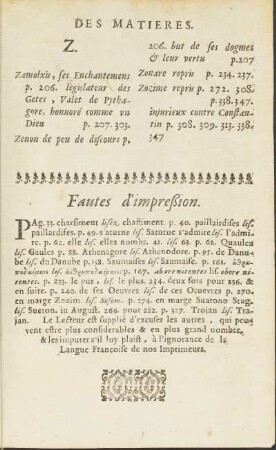 DES MATIERES.
Z.
Zamolxis, ses Enchantemens
p. 206. legulateur des
Getes, Valet de Pytha-
gore, honnoré comme vn
Dieu p. 207. 303.
Zenon de peu de discours p.
206. but de ses dogmes
& leur vertu p.207
Zonare repris p. 234. 237.
Zozime repris p. 272. 308.
p.338.347.
injurieux contre Constan-
tin p. 308. 309. 313. 338.
347
Fautes d'impreßion.
PAg. 33. chastiment lisez, chastiment. p. 40. paillairdises lis.
paillardises. p. 49. s'aturne lis. Saturne s'admire lis. l'admi-
re. p. 62. elle lis. elles nombr. 41. lis. 63. p. 62. Quaules
lis. Gaules p. 88. Athenagore lis. Athenodore. p. 95. de Danu-
be lis. du Danube p. 158. Saumaises lis. Saumaise. p. 161.
p. 167. ab ore nitentes lis. abore ni-
tentes. p. 233. le put lis. le plus. 234. deux fois pour 236. &
en suite. p. 240. de ses Oeuvres lis. de ces Oeuvres p. 270.
en marge Zozim. lis. Sozom. p. 274. en marge Suatono Stug.
lis. Sueton. in August. 266. pour 282. p. 327. Trojan lis. Trajan.
Le Lecteur est supplié d'excuser les autres, qui peu
vent estre plus considerables & en plus grand nombre,
& les imputer s'il luy plaist, à l'ignorance de la
Langue Françoise de nos Imprimeurs.